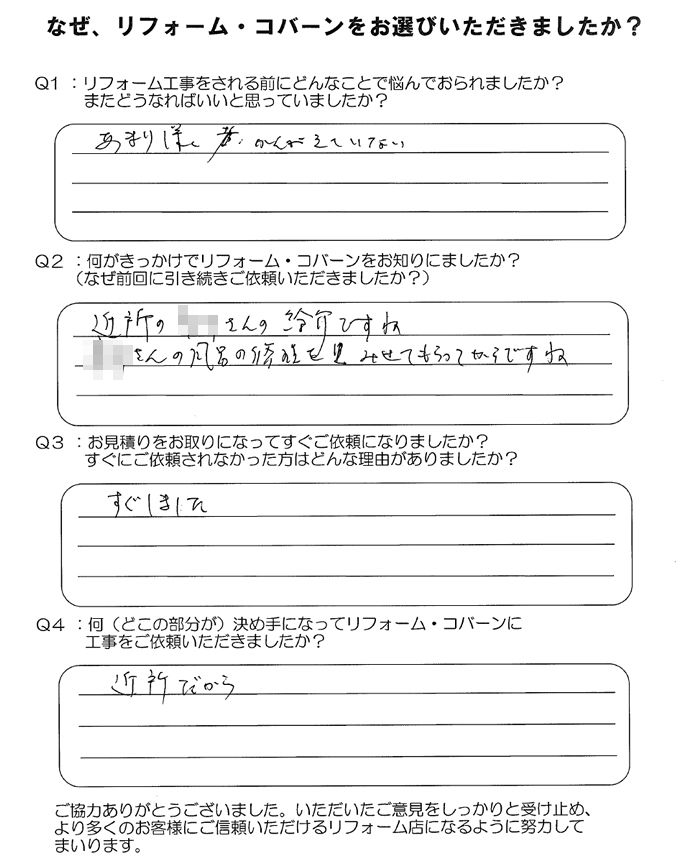 なぜ、リフォーム・コバーンをお選びいただきましたか？
Q1 ：リフォーム工事をされる前にどんなことで悩んでおられましたか？
またどうなればいいと思っていましたか？
あまり かんがえていない
Q2 ：何がきっかけでリフォーム・コバーンをお知りにましたか？
（なぜ前回に引き続きご依頼いただきましたか？）
近所の さんの紹介ですね
さんの風呂の修理を みせてもらってからですね
Q3 ：お見積りをお取りになってすぐご依頼になりましたか？
すぐにご依頼されなかった方はどんな理由がありましたか？
すぐしました
Q4 ：何（どこの部分が）決め手になってリフォーム・コバーンに
工事をご依頼いただきましたか？
近所だから
ご協力ありがとうございました。いただいたご意見をしっかりと受け止め、
より多くのお客様にご信頼いただけるリフォーム店になるように努力して
まいります。